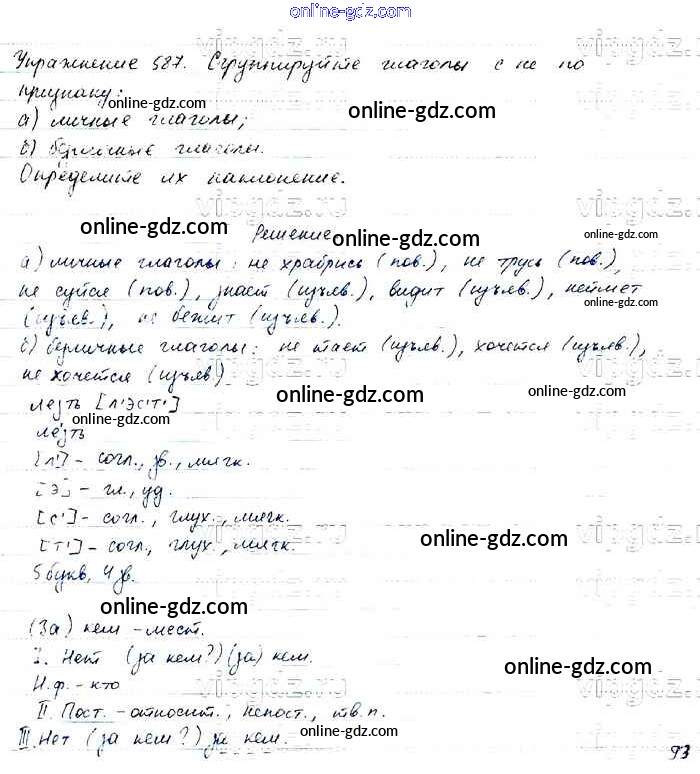 online-gdz.com
Упражнение 587. Сгруппируйте глаголы с не по
признаку:
online-gdz.com
online-gdz.com
а) личные глаголы;
б) безличные глаголы.
Определите их наклонение.
online-gdz.com
Решение
online-gdz.com
а) личные глаголы: не храбрись (пов.), не трусь (пов.),
не суйся (пов.), знает (изъяв.), видит (изъяв.), неймет
(изъяв.), не бежит (изъяв.).
б) безличные глаголы: не тает (изъяв.), хочется (изъяв.),
не хочется (изъяв)
online-gdz.com
online-gdz.com
лезть [л'эс'т']
лезть
[л'] - согл., зв., мягк.
[э] - гл., уд.
[с'] - согл., глух., мягк.
[т'] - согл., глух., мягк.
online-gdz.com
5 букв, 4 зв.
online-gdz.com
(За) кем - мест.
I. Нет (за кем?) (за) кем.
online-gdz.com
Н.ф. - кто
II. Пост. - относит., непост., тв.п.
III. Нет (за кем?) за кем.
online-gdz.com
93